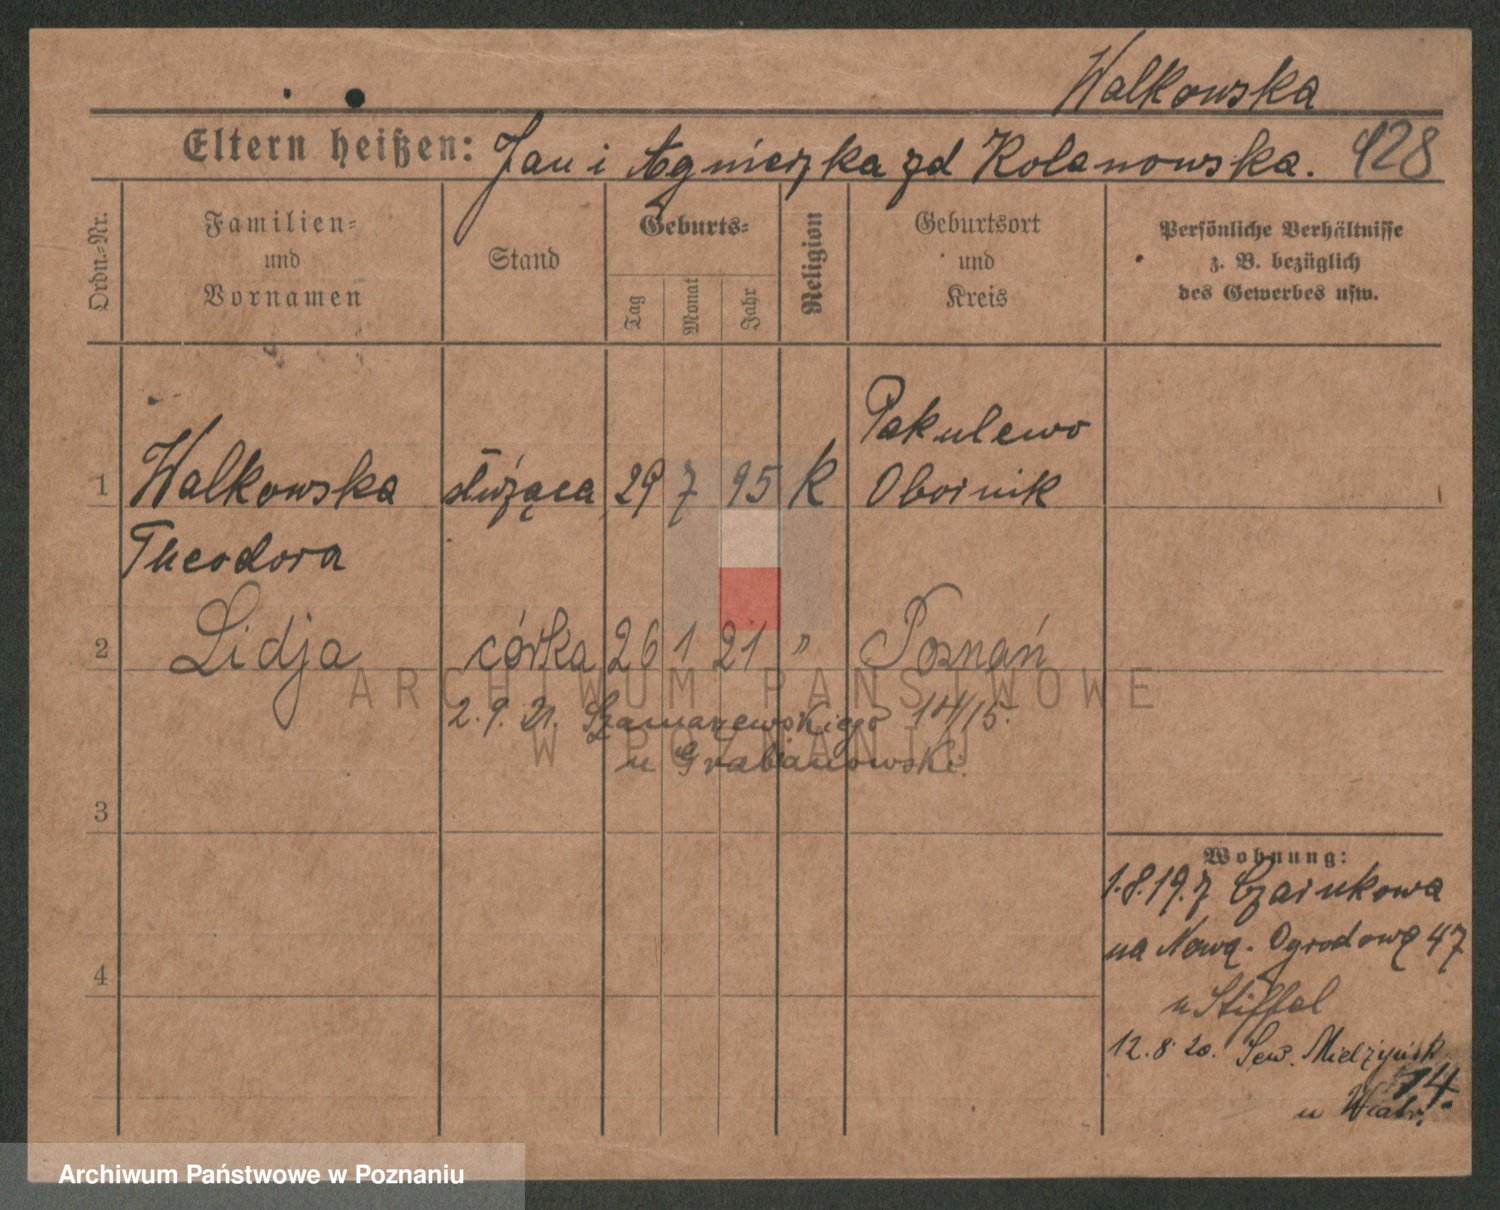 Walkowska
Eltern heißen: Jan i Agnieszka zd Kolanowska. 428
Ordn.-Nr.
Familien-
und
Vornamen
Stand
Geburts-
Tag
Monat
Jahr
Religion
Geburtsort
und
Kreis
Persönliche Verhältnisse
z. B. bezüglich
des Gewerbes usw.
Pakulewo
1 Walkowska służąca 29 7 95 K Obornik
Theodora
2 Lidja córka 26 1 21 " Poznań
ARCHIWUM PAŃSTWOWE
2.9.21. Szamarzewskiego 14/15.
W POZNANIU
u Grabanowski.
3
Wohnung:
1.8.19. z Czarnkowa
na Nową-Ogrodową 47
4
u Stiffel
12.8.20. Sew. Mielżyńsk
14.
u
Archiwum Państwowe w Poznaniu